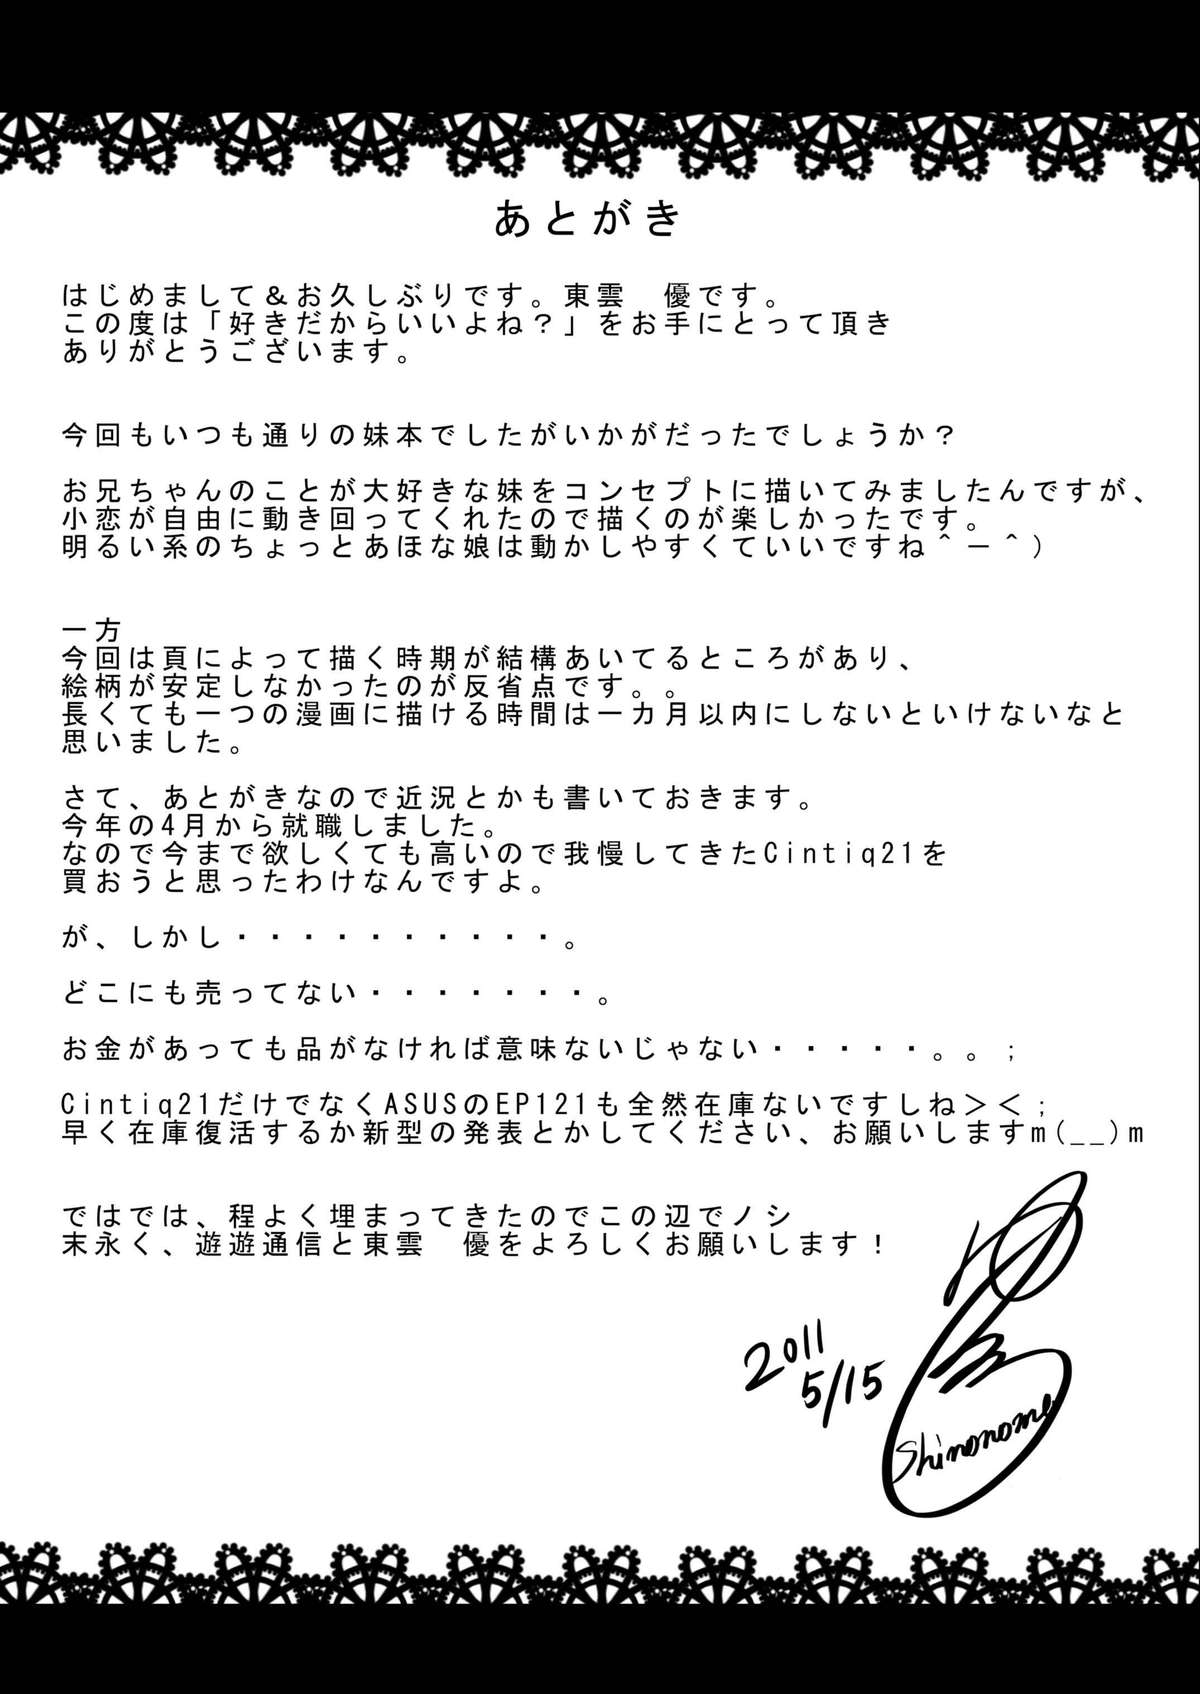 あとがき
はじめまして＆お久しぶりです。東雲　優です。
この度は「好きだからいいよね？」をお手にとって頂き
ありがとうございます。
今回もいつも通りの妹本でしたがいかがだったでしょうか？
お兄ちゃんのことが大好きな妹をコンセプトに描いてみましたんですが、
小恋が自由に動き回ってくれたので描くのが楽しかったです。
明るい系のちょっとあほな娘は動かしやすくていいですね＾－＾）
一方
今回は頁によって描く時期が結構あいてるところがあり、
絵柄が安定しなかったのが反省点です。。
長くても一つの漫画に描ける時間は一カ月以内にしないといけないなと
思いました。
さて、あとがきなので近況とかも書いておきます。
今年の4月から就職しました。
なので今まで欲しくても高いので我慢してきたCintiq21を
買おうと思ったわけなんですよ。
が、しかし・・・・・・・・・・。
どこにも売ってない・・・・・・・。
お金があっても品がなければ意味ないじゃない・・・・・。。；
Cintiq21だけでなくASUSのEP121も全然在庫ないですしね＞＜；
早く在庫復活するか新型の発表とかしてください、お願いしますm(__)m
ではでは、程よく埋まってきたのでこの辺でノシ
末永く、遊遊通信と東雲　優をよろしくお願いします！
2011
5/15
Shinonome